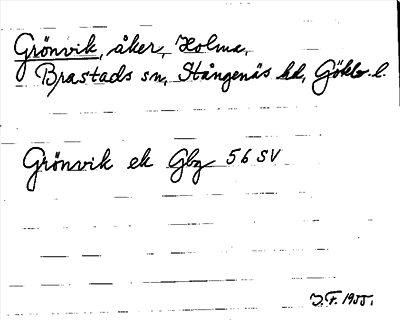 Grönvik, åker, Holma,
Brastads sn, Stångenäs hd, Gökb l.
Grönvik ek Gbg 56 SV
J.F. 1955.